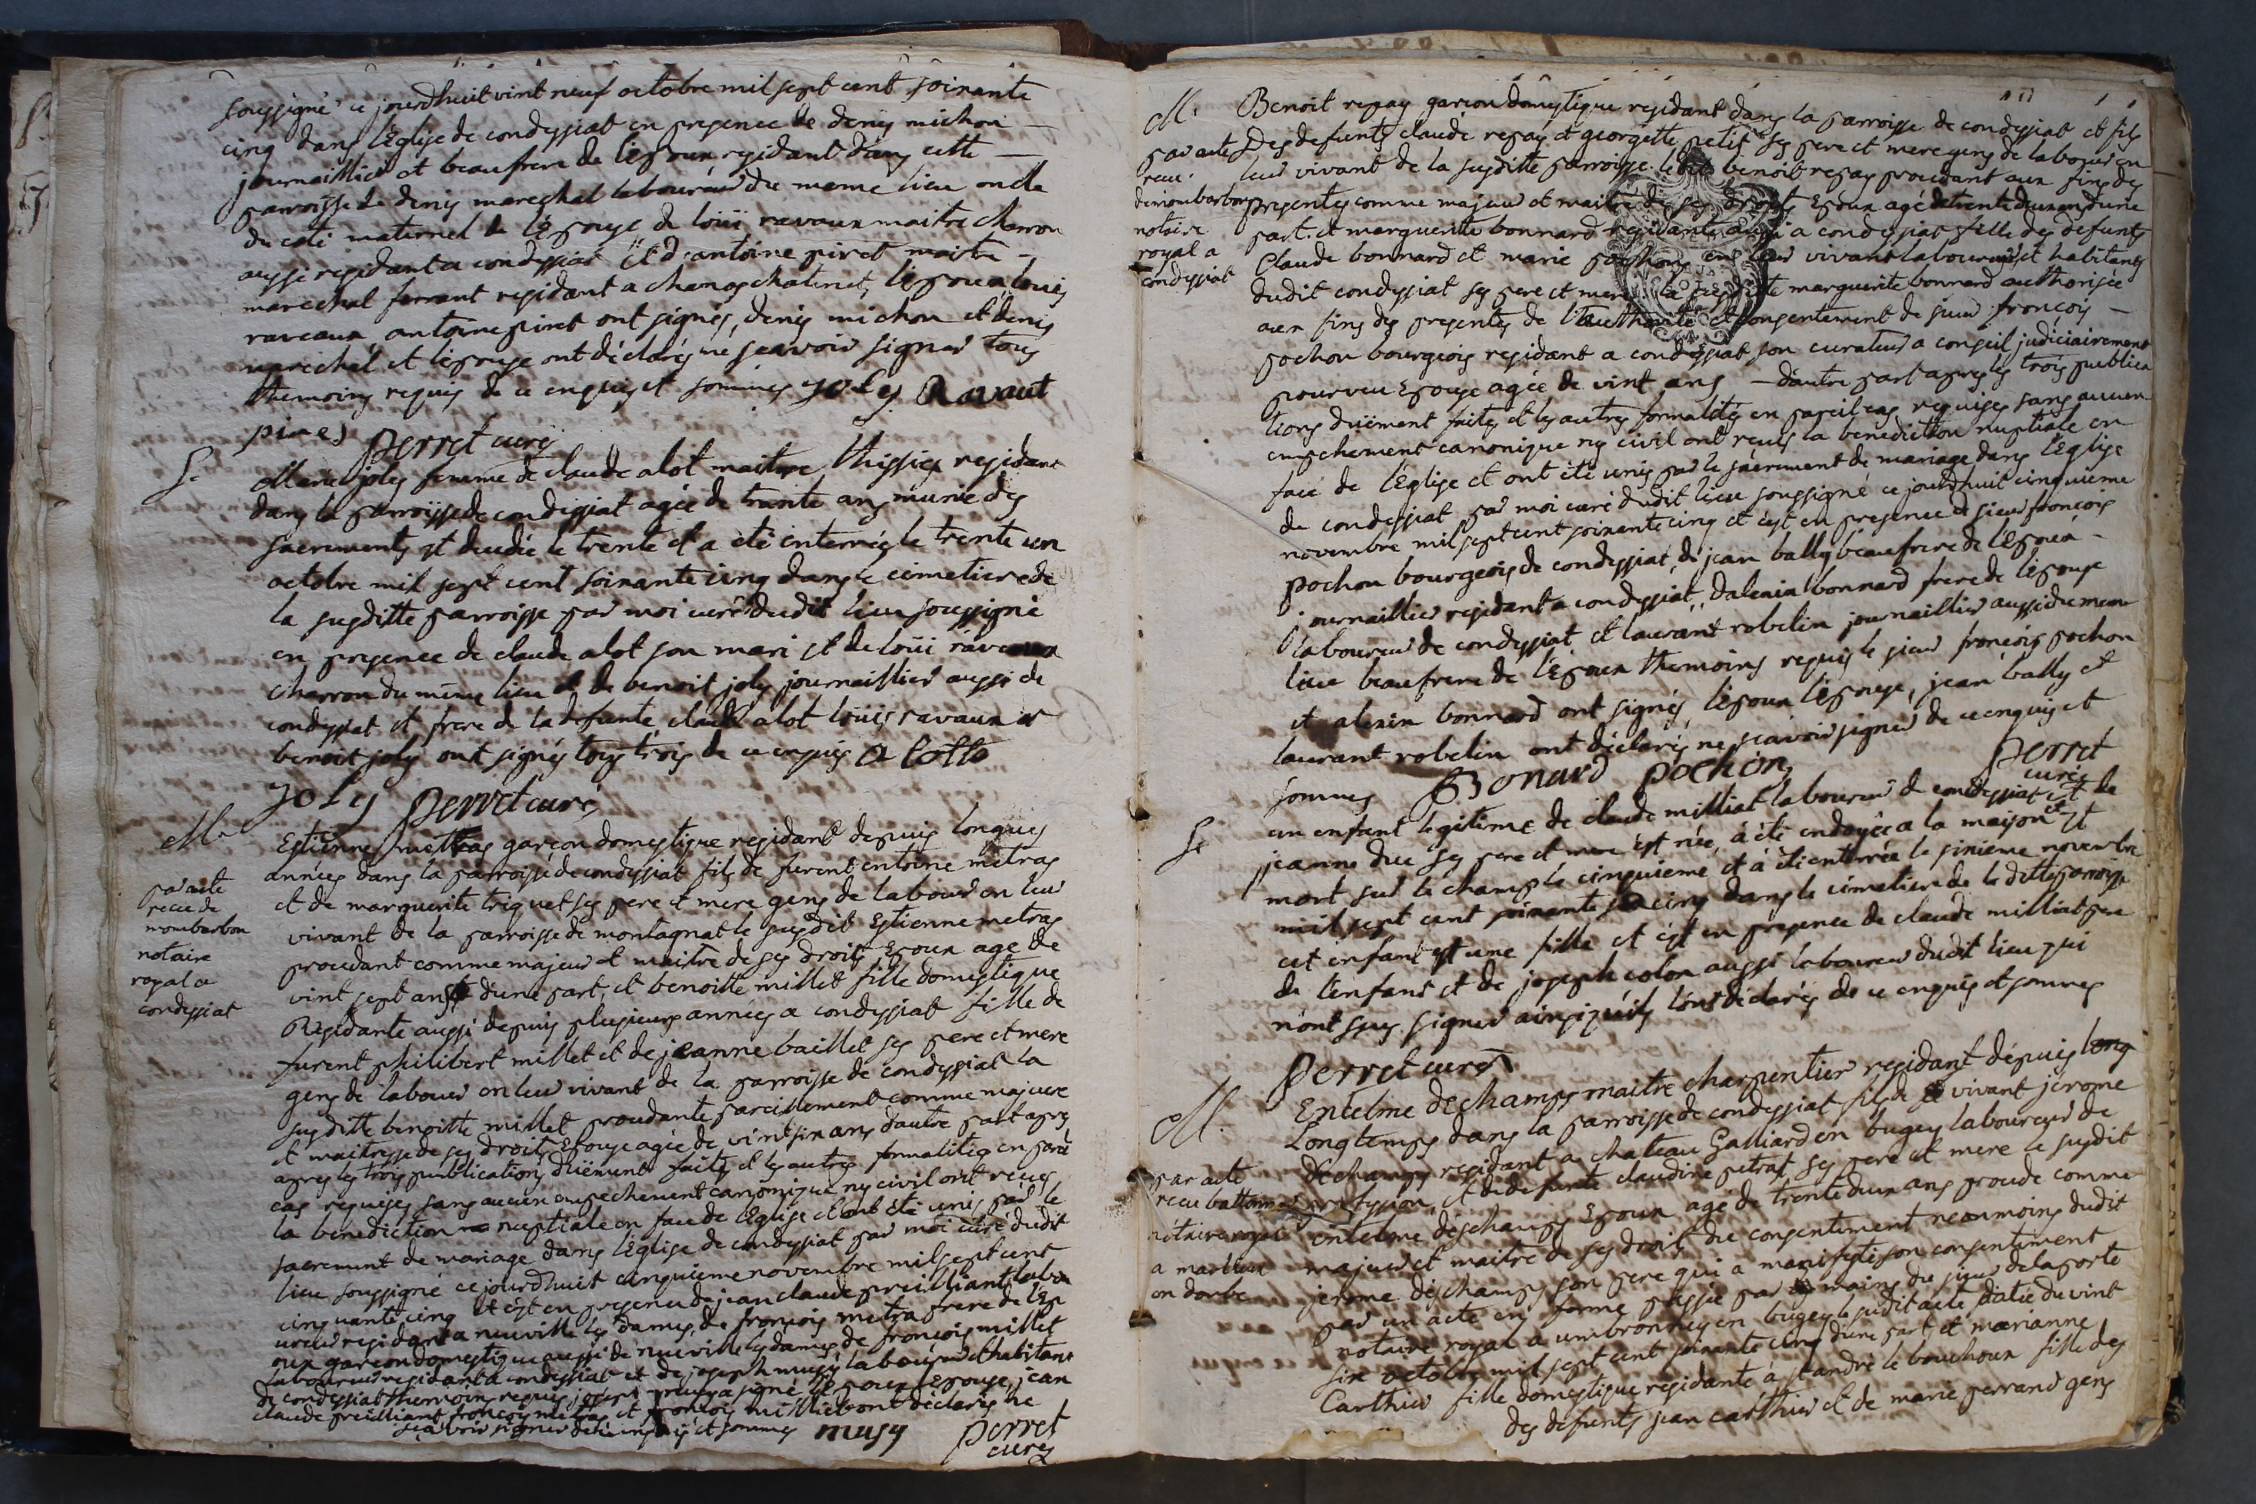 soussigné ce jourdhuit vint neuf octobre mil sept cent soixante
cinq dans l'Eglise de condeyssiat en presence de denis michon
journaillier et beaufrere de l'Epoux residant dans cette
parroisse de denis marechal laboureur du meme lieu oncle
du coté maternel de l'Epouse de loüi ravaux maitre charron
aussy residant a condeyssiat et d'antoine piret maitre
marechal ferrant residant a chanoz chatenet, l'epoux, louis
raveaux, antoine piret ont signés, denis michon et denis
marechal et l'epouse ont déclarés ne sçavoir signer tous
themoins requis de ce enquis et sommés joly Ravaut
pires perret curé
S. Marie joly femme de claude alot maitre thissier residant
dans la parroisse de condeyssiat agée de trente ans munie des
sacrements est decedée le trente et a été enterrée le trente un
octobre mil sept cent soixante cinq dans le cimetiere de
la susditte parroisse par moi curé dudit lieu soussigné
en presence de claude alot son mari et de loüi ravaux
charron du même lieu et de benoit joly journaillier aussi de
condeyssiat et frere de la defunte, claude alot loüis ravaux et
benoit joly ont signés tous trois de ce enquis a lotto
joly perret curé
M. Estienne mettras garçon domestique residant depuis longues
années dans la parroisse de condeyssiat fils de furent entoine metras
et de marguerite triquet ses pere et mere gens de labour en leur
vivant de la parroisse de montagnat le susdit Estienne metras
procedant comme majeur et maitre de ses droits Epoux agé de
vint sept ans d'une part, et benoitte millet fille domestique
Residante aussi depuis plusieurs années a condeyssiat fille de
furent philibert millet et de jeanne baillet ses pere et mere
gens de labour en leur vivant de la parroisse de condeyssiat la
susditte benoitte millet procedante pareillement comme majeure
et maitresse de ses droits Epouse agée de vint six ans d'autre part apres
apres les trois publications düement faites et les autres formalités en pareil
cas requises sans aucun empechement canonique ny civil ont reçus
la benediction nuptiale en face de l'Eglise et ont été unis par le
sacrement de mariage dans l'Eglise de condeyssiat par moi curé dudit
lieu soussigné ce jourdhuit cinquieme novembre mil sept cent
cinquante cinq et c'est en presence de jean claude preilliant labou
ureur residant a neuville les dames, de françois metra frere de l'Ep
oux garçon domestique aussi de neuville les dames de françois millet
laboureur residant a condeyssiat et de joseph musy laboureur et habitant
de condeyssiat themoins requis joseph musy a signé, l'Epoux l'Epouse, jean
claude preilliant françois metras et françois millet ont declarés ne
sçavoir signer de ce enquis et sommés musy perret
curé
par acte
recu de
monbarbon
notaire
royal a
condeyssiat
M. Benoit repay garcon domestique residant dans la parroisse de condeyssiat et fils
des defunts claude repay et georgette petit ses pere et mere gens de labour en
leur vivant de la susditte parroisse ledit benoit repay procedant aux fins des
presentes comme majeur et maitre de ses droits Epoux agé de trente deux ans d'une
part. et marguerite bonnard residante aussi a condeyssiat fille des defunts
Claude bonnard et marie pochon en leur vivant laboureurs et habitants
dudit condeyssiat ses pere et mere la susditte marguerite bonnard authorisée
aux fins des presentes de l'authorité et consentement de sieur françois
pochon bourgeois residant a condeyssiat son curateur a conseil judiciairement
pourveu Epouse agée de vint ans d'autre part apres les trois publica
tions düement faites et les autres formalités en pareil cas requises sans aucun
empechement canonique ny civil ont reçus la benediction nuptiale en
face de l'Eglise et ont été unis par le sacrement de mariage dans l'Eglise
de condeyssiat par moi curé dudit lieu soussigné ce jourdhuit cinquieme
novembre mil sept cent soixante cinq et c'est en presence de sieur françois
pochon bourgeois de condeyssiat, de jean bally beaufrere de l'Epoux
journaillier residant a condeyssiat, d'alexin bonnard frere de l'epouse
laboureur de condeyssiat, et laurant robelin journaillier aussi du meme
lieu beaufrere de l'Epoux themoins requis le sieur françois pochon
et alexin bonnard ont signés, l'epoux l'epouse, jean bally et
laurant robelin ont déclarés ne sçavoir signer de ce enquis et
sommés Bonard pochon perret
curé
par acte
recu
de monbarbon
notaire
royal a
condeyssiat
S. un enfant legitime de claude milliat laboureur de condeyssiat et de
jeanne duc ses pere et mere est née, a été ondoyée a la maison et
mort sur le champ le cinquieme et a été enterrée le sixieme novembre
mil sept cent soixante cinq dans le cimetiere de la ditte parroisse
cet enfant est une fille et c'est en presence de claude milliat pere
de l'enfant et de joseph colon aussi laboureur dudit lieu qui
n'ont sçus signer ainsi qu'ils l'ont déclarés de ce enquis et sommés
perret curé
M. Entelme dechamps maitre charpentier residant depuis long
Longtemps dans la parroisse de condeyssiat fils de vivant jerome
dechamps residant a chateau Galliard en bugey laboureur de
profession, et de defunte claudine petrat ses pere et mere le susdit
entelme deschamps Epoux agé de trente deux ans procede comme
majeur et maitre de ses droits du consentiment neanmoins dudit
jerome deschamps son pere qui a manifesté son consentiment
par un acte en forme passée par mains du sieur delaporte
notaire royal a umbronney en bugey le susdit acte datée du vint
six octobre mil sept cent soixante cinq d'une part, et marianne
Carthier fille domestique residante a st andré le bouchoux fille des
des defunts jean carthier et de marie ferrand gens
par acte
recu
notaire royal
a marlieux
en dombe